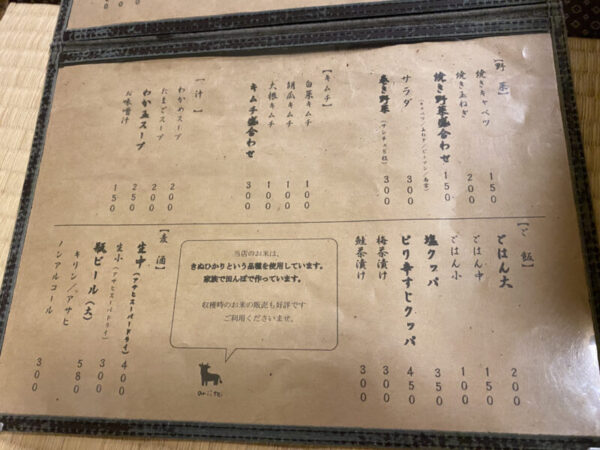 【野菜】
焼きキャベツ 150
焼き玉ねぎ 200
焼き野菜盛合わせ 150
サラダ 300
巻き野菜（サンチュ5枚） 300
【キムチ】
白菜キムチ 100
胡瓜キムチ 100
大根キムチ 100
キムチ盛合わせ 300
【汁】
わかめスープ 200
たまごスープ 200
わか玉スープ 250
お味噌汁 150
【ご飯】
ごはん大 200
ごはん中 150
ごはん小 100
塩クッパ 350
ピリ辛すじクッパ 450
梅茶漬け 300
鮭茶漬け 300
当店のお米は、
きぬひかりという品種を使用しています。
家族で田んぼで作っています。
収穫時のお米の販売も好評です
ご利用くださいませ。
【麦酒】
生中（アサヒスーパードライ） 400
生小（アサヒスーパードライ） 300
瓶ビール（大）
キリン／アサヒ 580
ノンアルコール 300